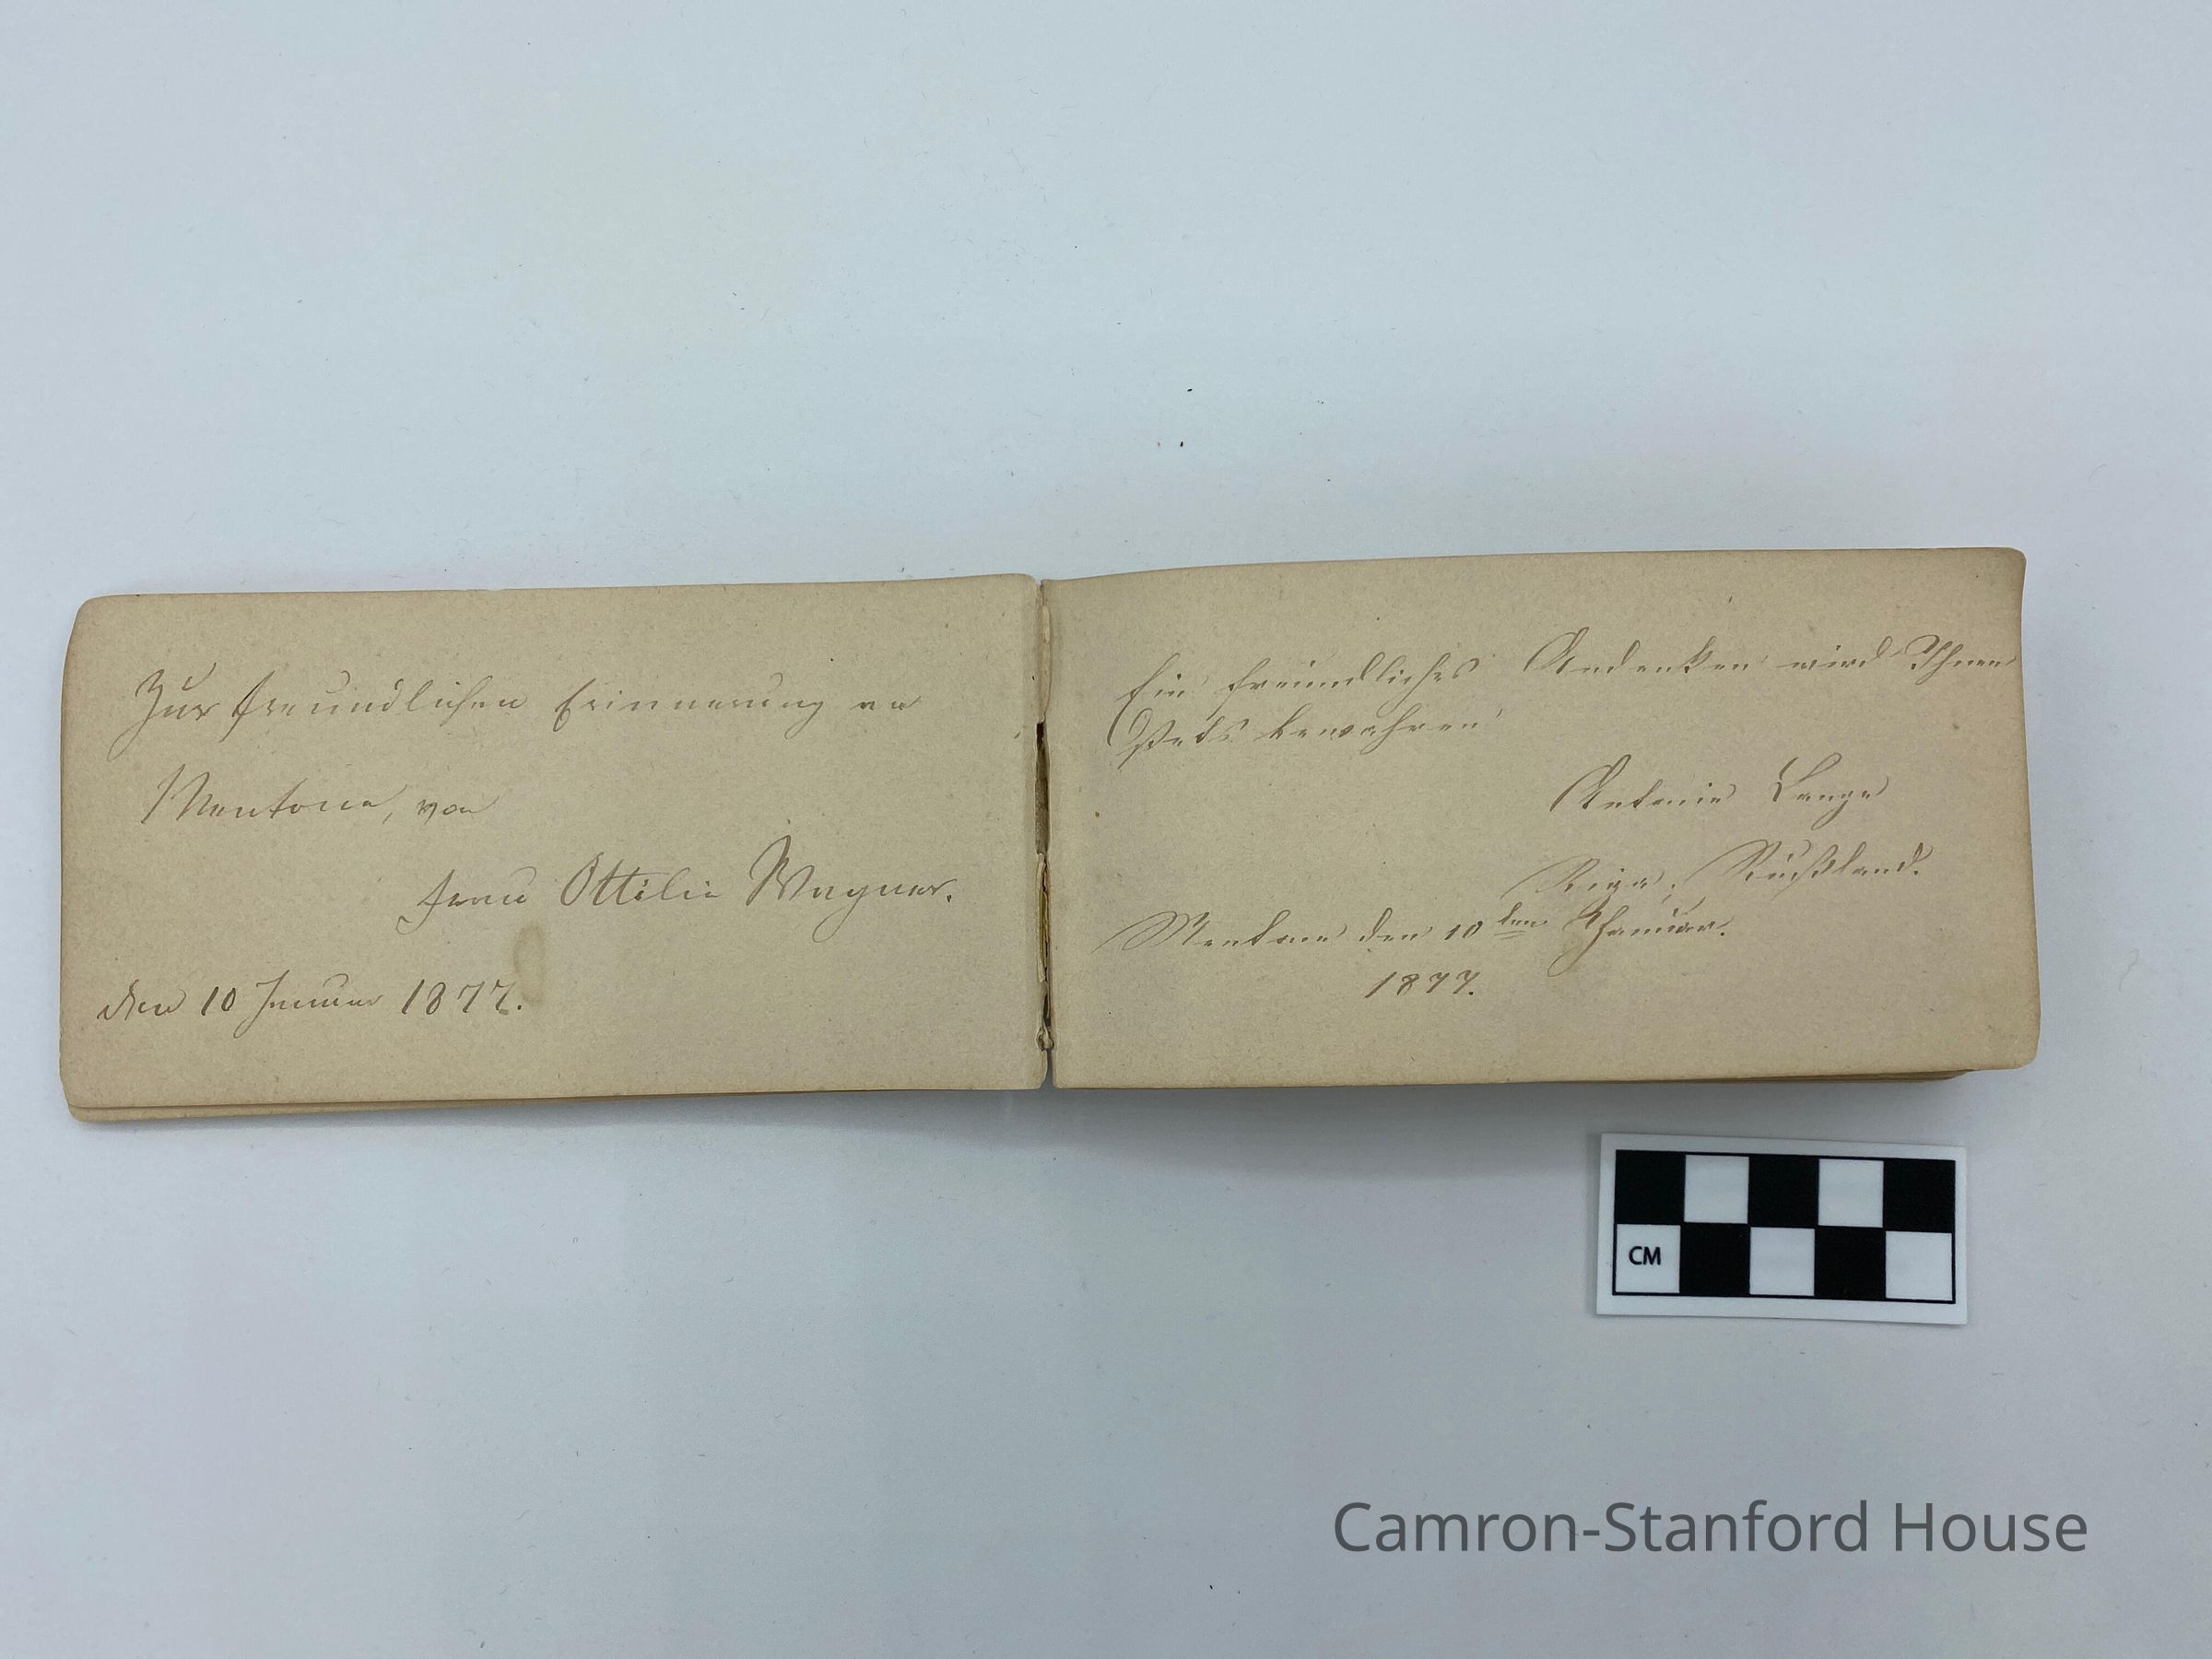 Zur freundlichen Erinnerung an
Mentone, von
Frau Ottilie Wagner.
den 10 Januar 1877.
Ein freundliches Andenken wird Ihnen
stets bewahren
Antonie Lange
Riga, Rußland.
Mentone den 10ten Januar.
1877.
CM
Camron-Stanford House